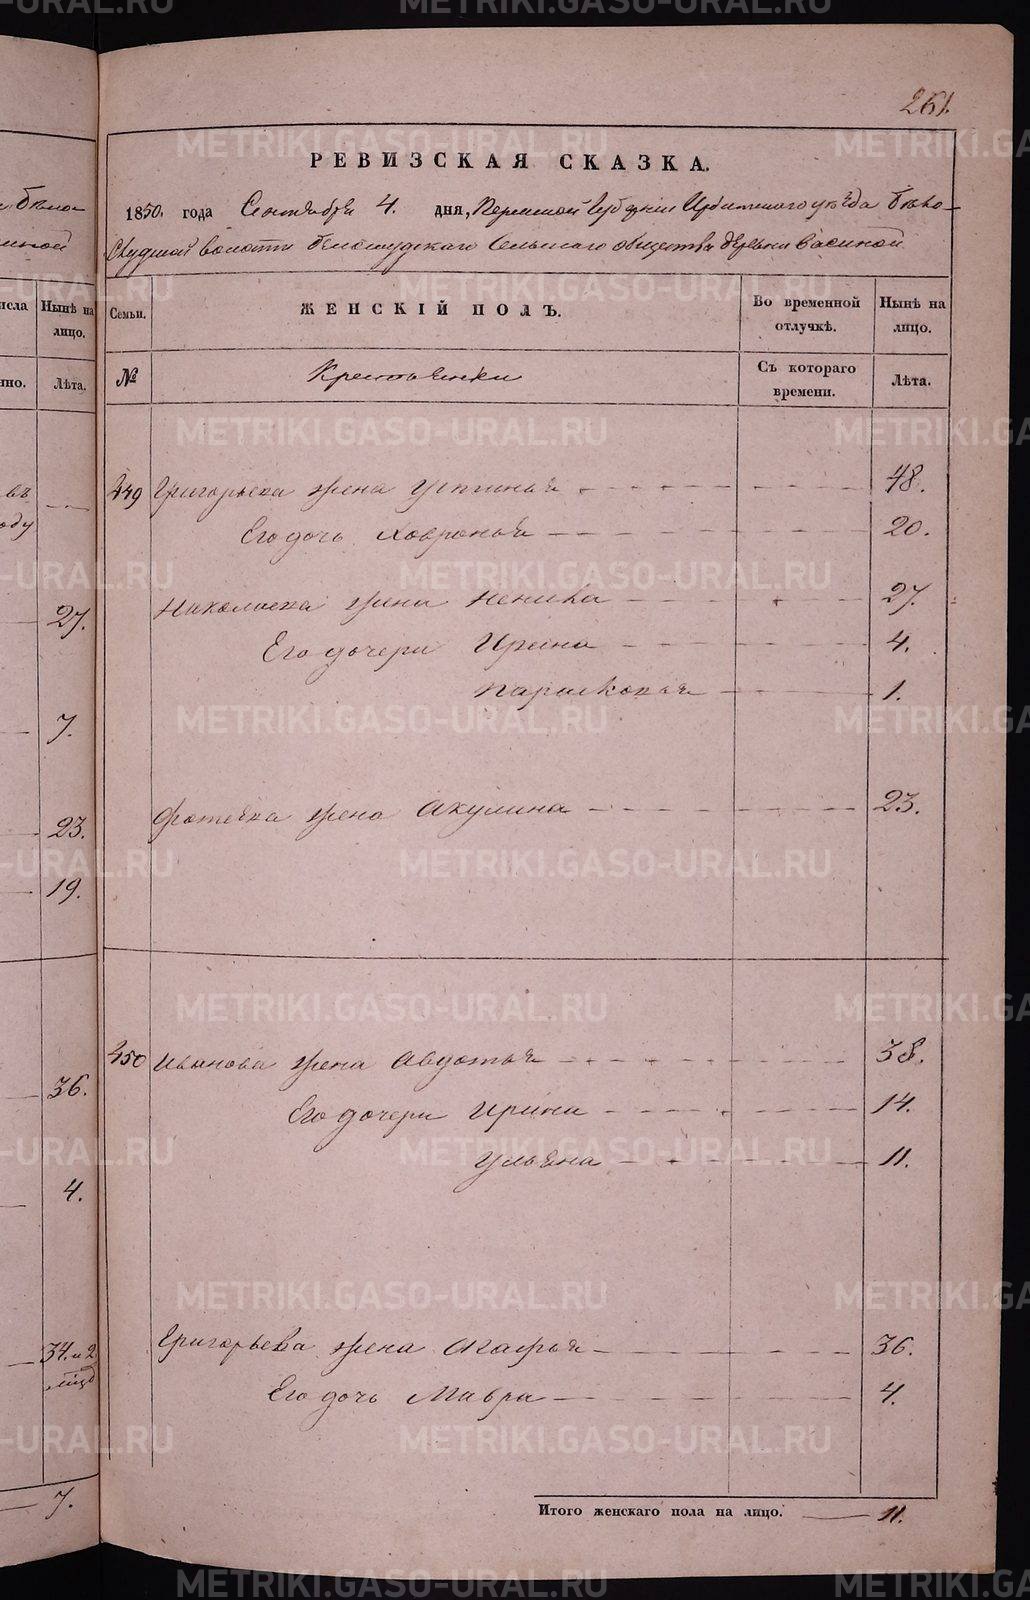 261.
РЕВИЗСКАЯ СКАЗКА.
1850. года Сентября 4. дня, Пермской Губернии Ирбитского уѣзда Бѣло-
слудской волости Белослудскаго Сельскаго общества деревни Васиной
Семьи.
ЖЕНСКІЙ ПОЛЪ.
Во временной отлучкѣ.
Нынѣ на лицо.
№
Крестьянки
Съ котораго времени.
Лѣта.
449 Григорьева жена Устинья 48.
Его дочь Ховронья 20.
Николаева жена 27.
Его дочери Ирина 4.
Парасковья 1.
Фотеева жена Акулина 23.
450 Иванова жена Авдотья 38.
Его дочери Ирина 14.
Ульяна 11.
Григорьева жена Агафья 36.
Его дочь Мавра 4.
Итого женскаго пола на лицо. 11.
Нынѣ на лицо.
Лѣта.
27.
7.
23.
19.
36.
4.
34. и 2
7.
METRIKI.GASO-URAL.RU